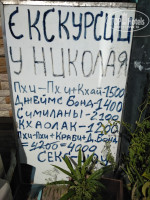 ЕКСКУРСИИ
У НИКОЛАЯ
Пхи-Пхи+Кхай-1500
Джеймс Бонд-1400
Симиланы-2100
Кхаолак-1200
Пхи-Пхи+Краби+Д.Бонд
=4200=4000